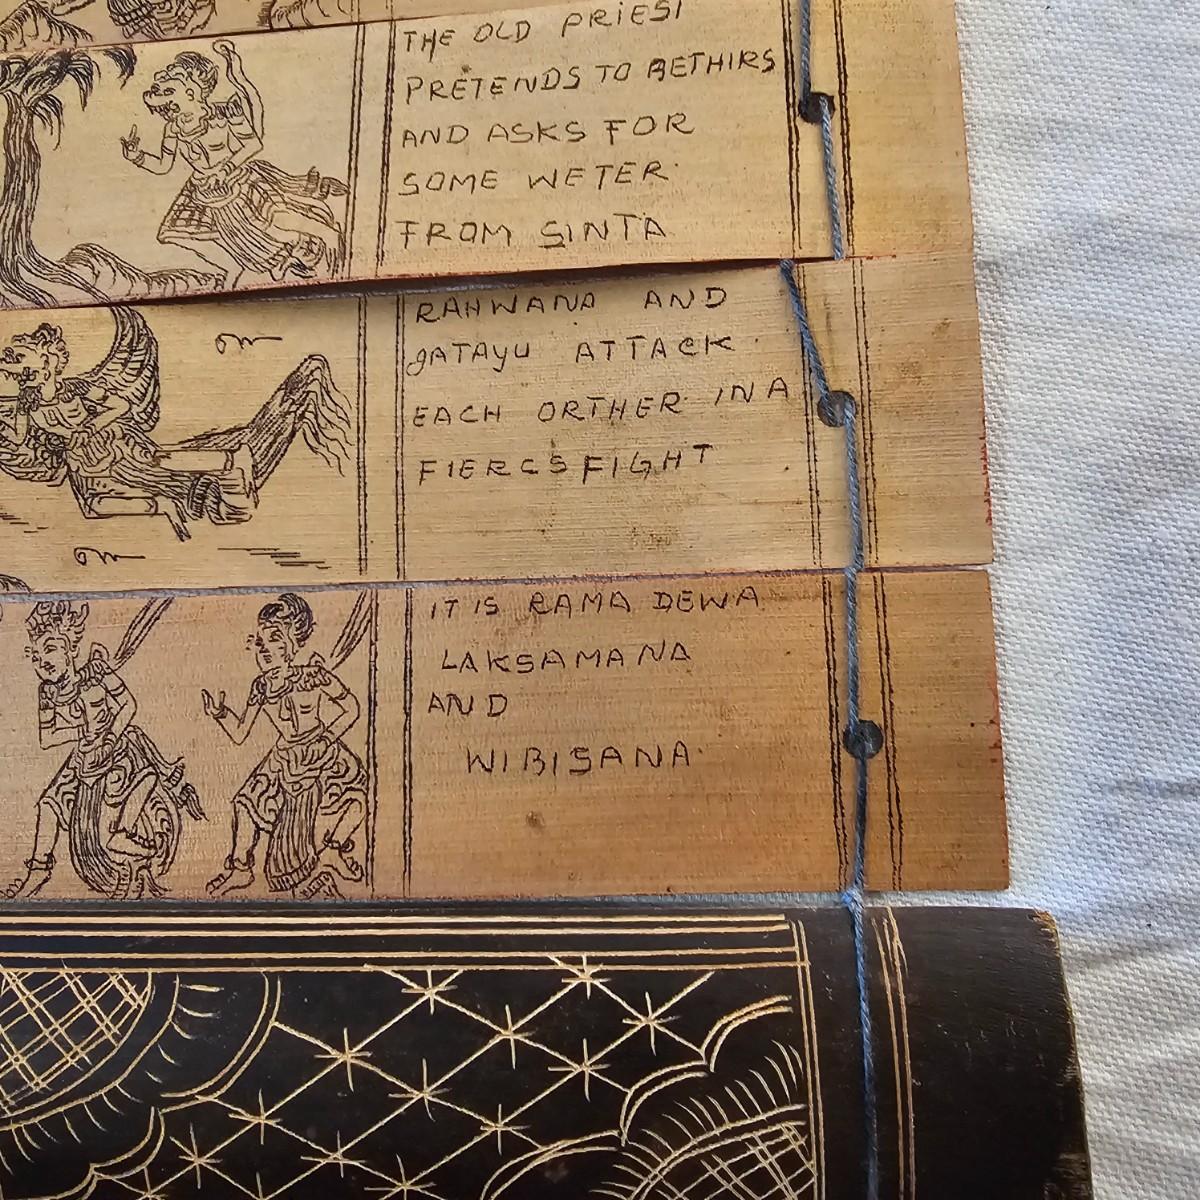 THE OLD PRIEST
PRETENDS TO BETHIRS
AND ASKS FOR
SOME WETER
FROM SINTA
RAHWANA AND
JATAYU ATTACK
EACH ORTHER IN A
FIERCS FIGHT
IT IS RAMA DEWA
LAKSAMANA
AND
WIBISANA